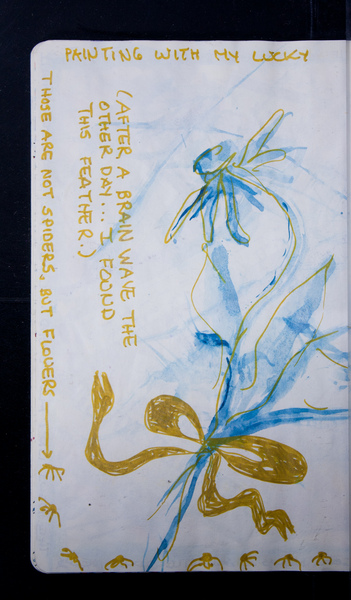 PAINTING WITH MY LUCKY
(AFTER A BRAIN WAVE THE
OTHER DAY... I FOUND
THIS FEATHER.)
THOSE ARE NOT SPIDERS, BUT FLOWERS